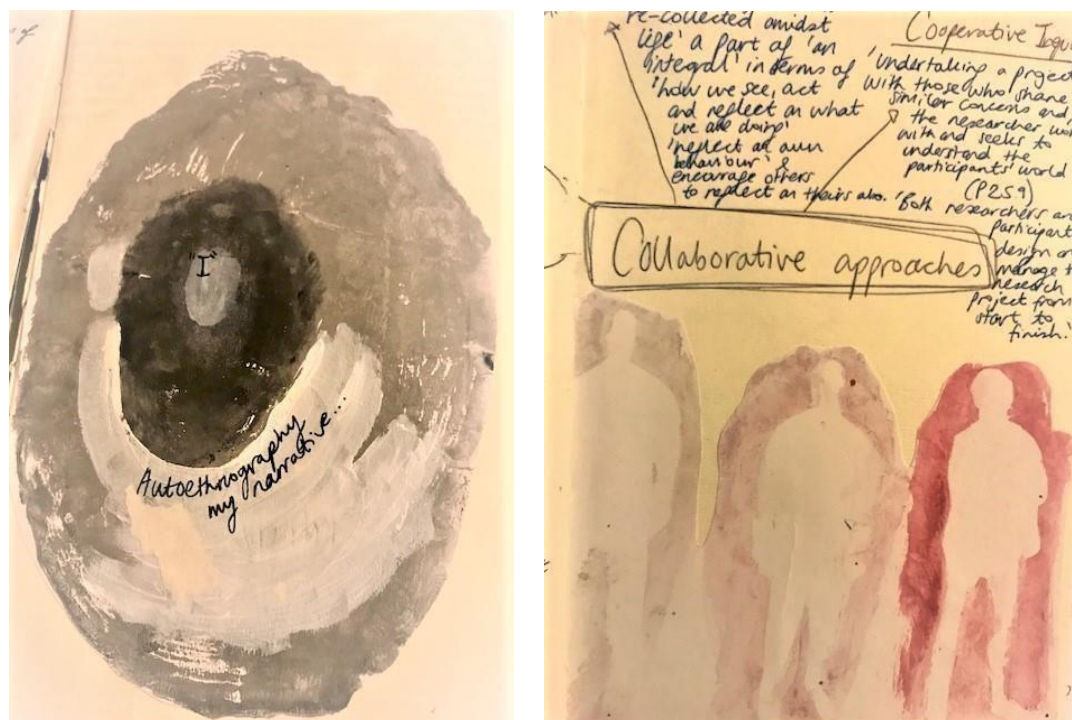 of
"I"
Autoethnography
my narrative...
re-collected amidst
life' a part of 'an
integral' in terms of
'how we see, act
and reflect on what
we are doing'
'reflect on own
behaviour' &
encourage others
to reflect on theirs also.
Cooperative Inqu
'undertaking a project
with those who share
similar concerns and
the researcher wor
with and seeks to
understand the
participants' world
(P259)
'Both researchers and
participant
design an
manage t
research
project from
start to
finish.'
Collaborative approaches